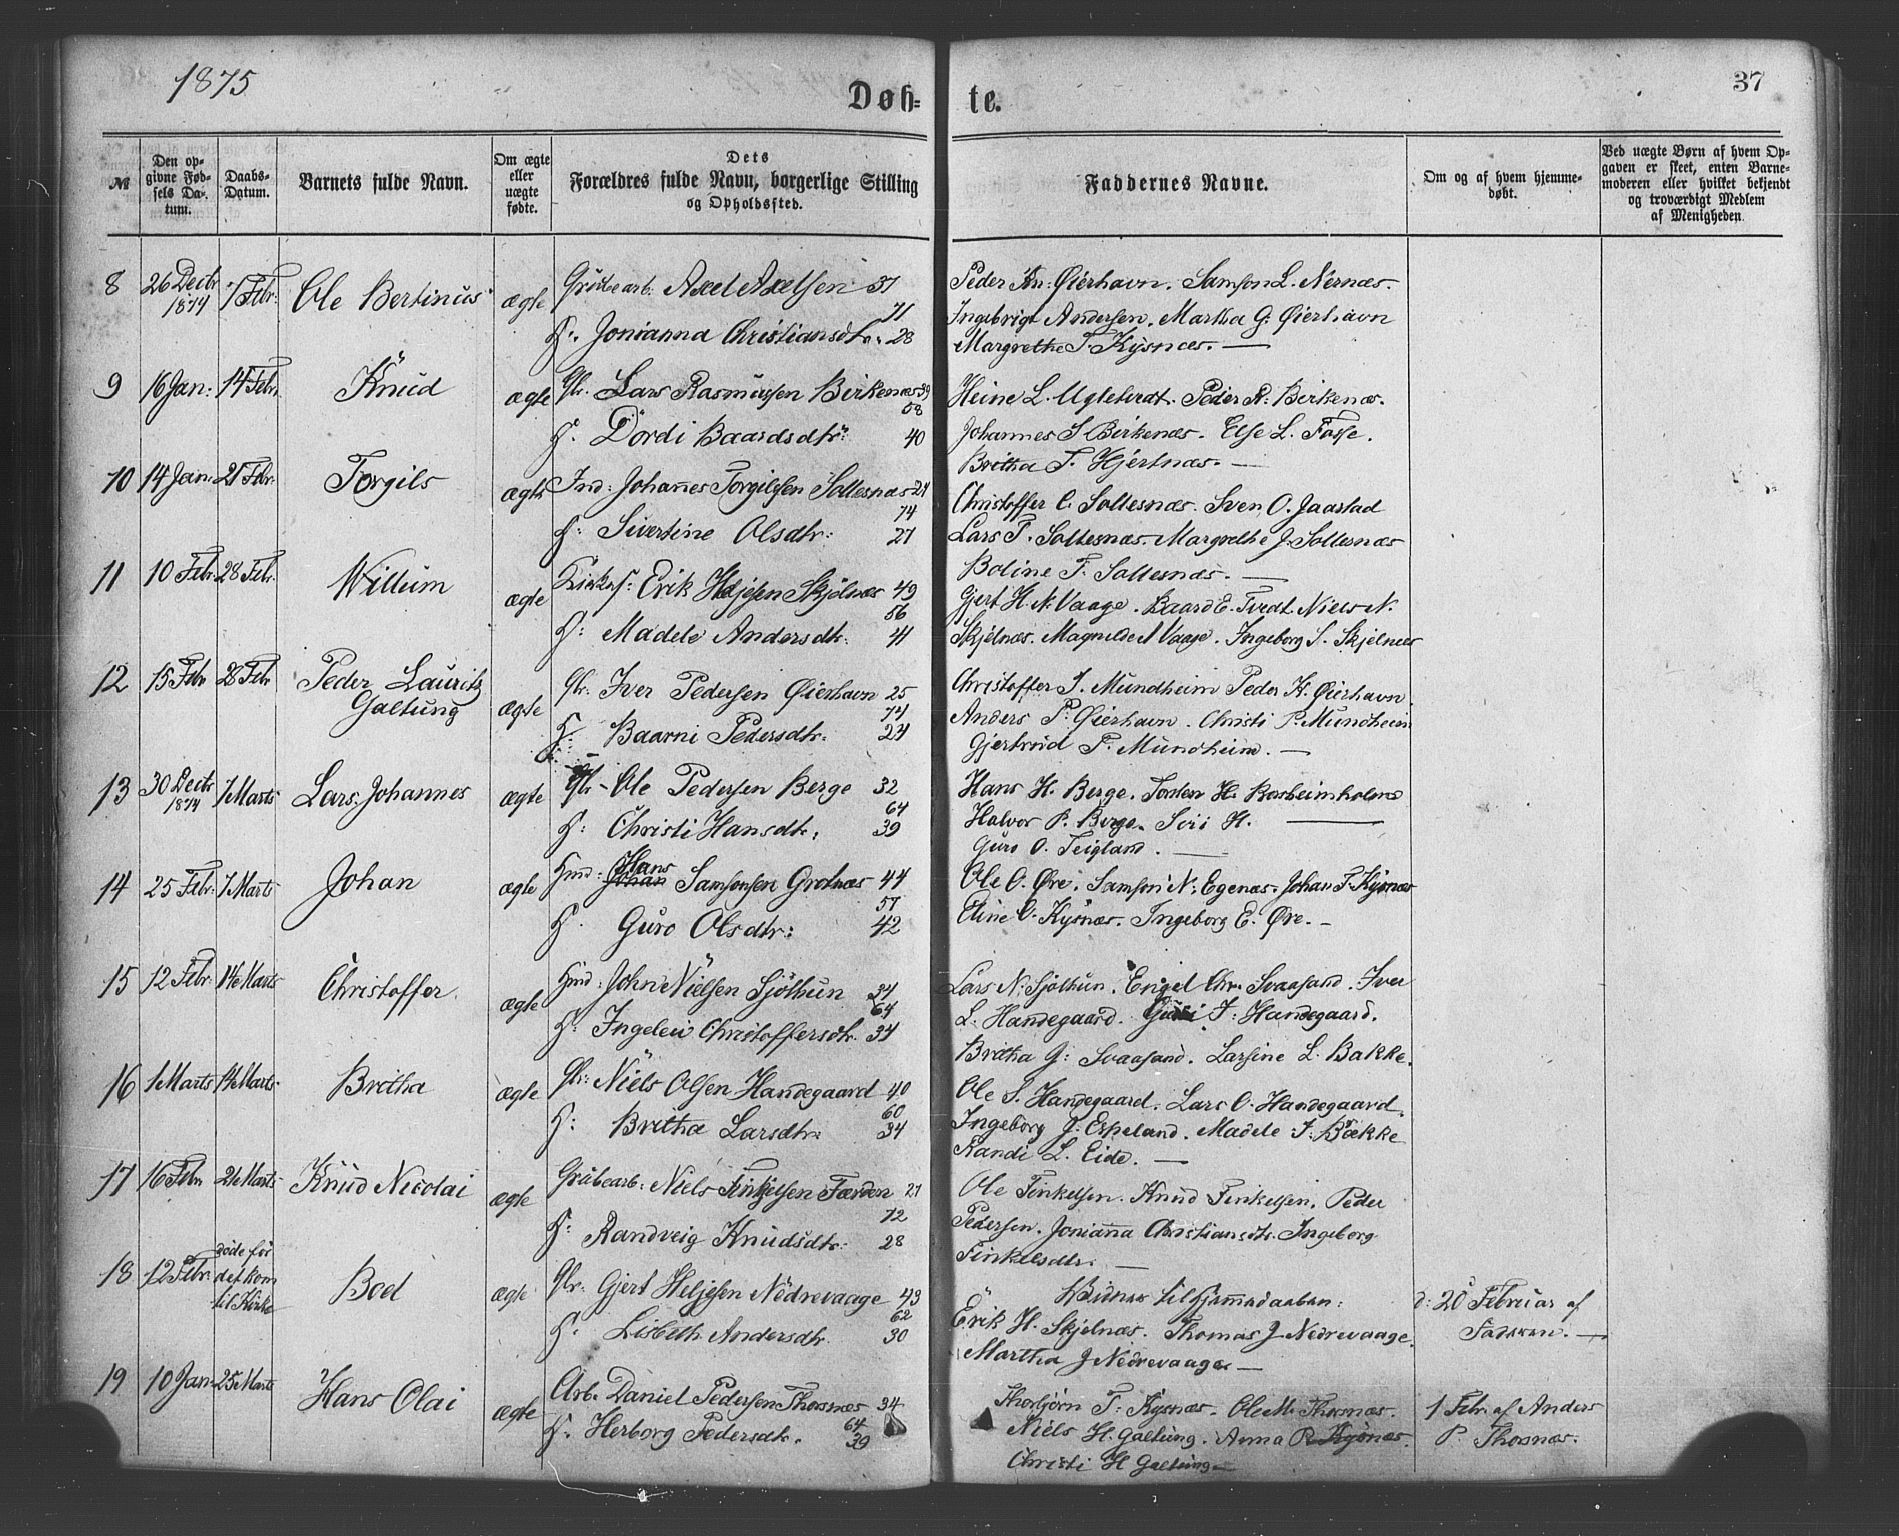 1875
37
Døb=te.
№
Den op-
givne Fød-
sels Da-
tum.
Daabs-
Datum.
Barnets fulde Navn.
Om ægte
eller
uægte
fødte.
Dets
Forældres fulde Navn, borgerlige Stilling
og Opholdssted.
Faddernes Navne.
Om og af hvem hjemme-
døbt.
Ved uægte Børn af hvem Op-
gaven er skeet, enten Barne-
moderen eller hvilket bekjendt
og troværdigt Medlem
af Menigheden.
8 26 Decbr 1874 7 Febr: Ole Bertinus ægte Grubearb: Axel Axelsen 37
71
H: Jonianna Christiansdtr: 28
Peder An: Øierhavn. Samson L. Nernæs.
Ingebrigt Andersen. Martha G. Øierhavn
Margrethe T. Kysnæs. —
9 16 Jan: 14 Febr. Knud ægte Gbr. Lars Rasmussen Birkenæs 39
58
H. Dordi Baardsdtr: 40
Heine L. Ugletvedt. Peder R: Birkenæs.
Johannes S Birkenæs. Else L. Fosse.
Britha T. Hjertnæs. —
10 14 Jan: 21 Febr: Torgils ægte Ind: Johannes Torgilssen Soltesnæs 24
74
H: Sivertine Olsdtr: 27
Christoffer C. Soltesnæs. Sven O. Jaastad
Lars T. Soltesnæs. Margrethe J. Soltesnæs
Boline T. Soltesnæs. —
11 10 Febr. 28 Febr. Willum ægte Erik Heljesen Skjelnæs 49
56
H: Madele Andersdtr. 41
Gjert H. N. Vaage. Baard E. Tvedt Niels N.
Skjelnæs. Magnilde N Vaage. Ingeborg S. Skjelnæs
12 15 Febr 28 Febr Peder Lauritz
Galtung ægte Gbr. Iver Pedersen Øierhavn 25
74
H: Baarni Pedersdtr. 24
Christoffer J. Mundheim Peder H. Øierhavn
Anders P. Øierhavn. Christi P. Mundheim
Gjertrud P. Mundheim. —
13 30 Decbr 1874 7 Marts Lars Johannes ægte Gbr - Ole Pedersen Berge 32
64
H: Christi Hansdtr. 39
Hans H. Berge. Torsten H. Rosseimholm
Halvor P. Berge. Siri H. —
Guro O. Teigland. —
14 25 Febr: 7 Marts Johan ægte Hmd: Hans Samsonsen Grotnæs 44
57
H. Guro Olsdtr: 42
Ole O. Øre. Samson N: Egenæs. Johan T. Kysnæs
Eline O. Kysnæs. Ingeborg E. Øre. -
15 12 Febr. 14 Marts Christoffer ægte Hmd: John Nielsen Sjöthun 34
64
H: Ingelev Christoffersdtr. 34
Lars N. Sjöthun. Engel Chr. Svaasand. Iver
L. Handegaard. J: Handegaard.
Britha G: Svaasand. Larsine L. Bakke.
16 1 Marts 14 Marts. Britha ægte Gbr: Niels Olsen Handegaard 40
60
H: Britha Larsdtr: 34
Ole S. Handegaard. Lars O. Handegaard.
Ingeborg J: Espeland. Madele J: Bakke
Randi L. Eide. —
17 16 Febr 21 Marts Knud Nicolai ægte Grubearb: Niels Finkelsen Færden 27
72
H: Randveig Knudsdtr: 28
Ole Finkelsen. Knud Finkelsen. Peder
Pedersen. Jonianna Christiansdtr. Ingeborg
Finkelsdtr. —
18 12 Febr: døde før
det kom
til Kirke Boel ægte Gbr. Gjert Heljesen Nedrevaage 43
62
H. Lisbeth Andersdtr. 30
Vidner til Hjemmedaaben:
Erik H. Skjelnæs. Thomas J Nedrevaage.
Martha J Nedrevaage. —
d: 20 Februar af
Faderen. —
19 10 Jan: 25 Marts Hans Olai ægte Arb. Daniel Pedersen Thorsnæs 34
64
H. Herborg Pedersdtr. 39
Thorbjörn T. Kysnæs. Ole M. Thorsnæs.
Niels H. Galtung. Anna P. Kysnæs.
Christi H Galtung —
1 Febr. af Anders
P. Thorsnæs.